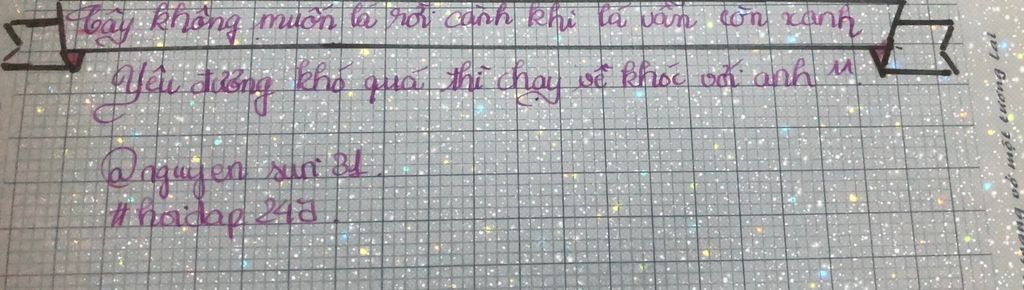 Cây không muốn lá rời cành khi lá vẫn còn xanh
Yêu đương khó quá thì chạy về khóc với anh "
@nguyen suri 31.
#hoidap 247.
vở một tương lai